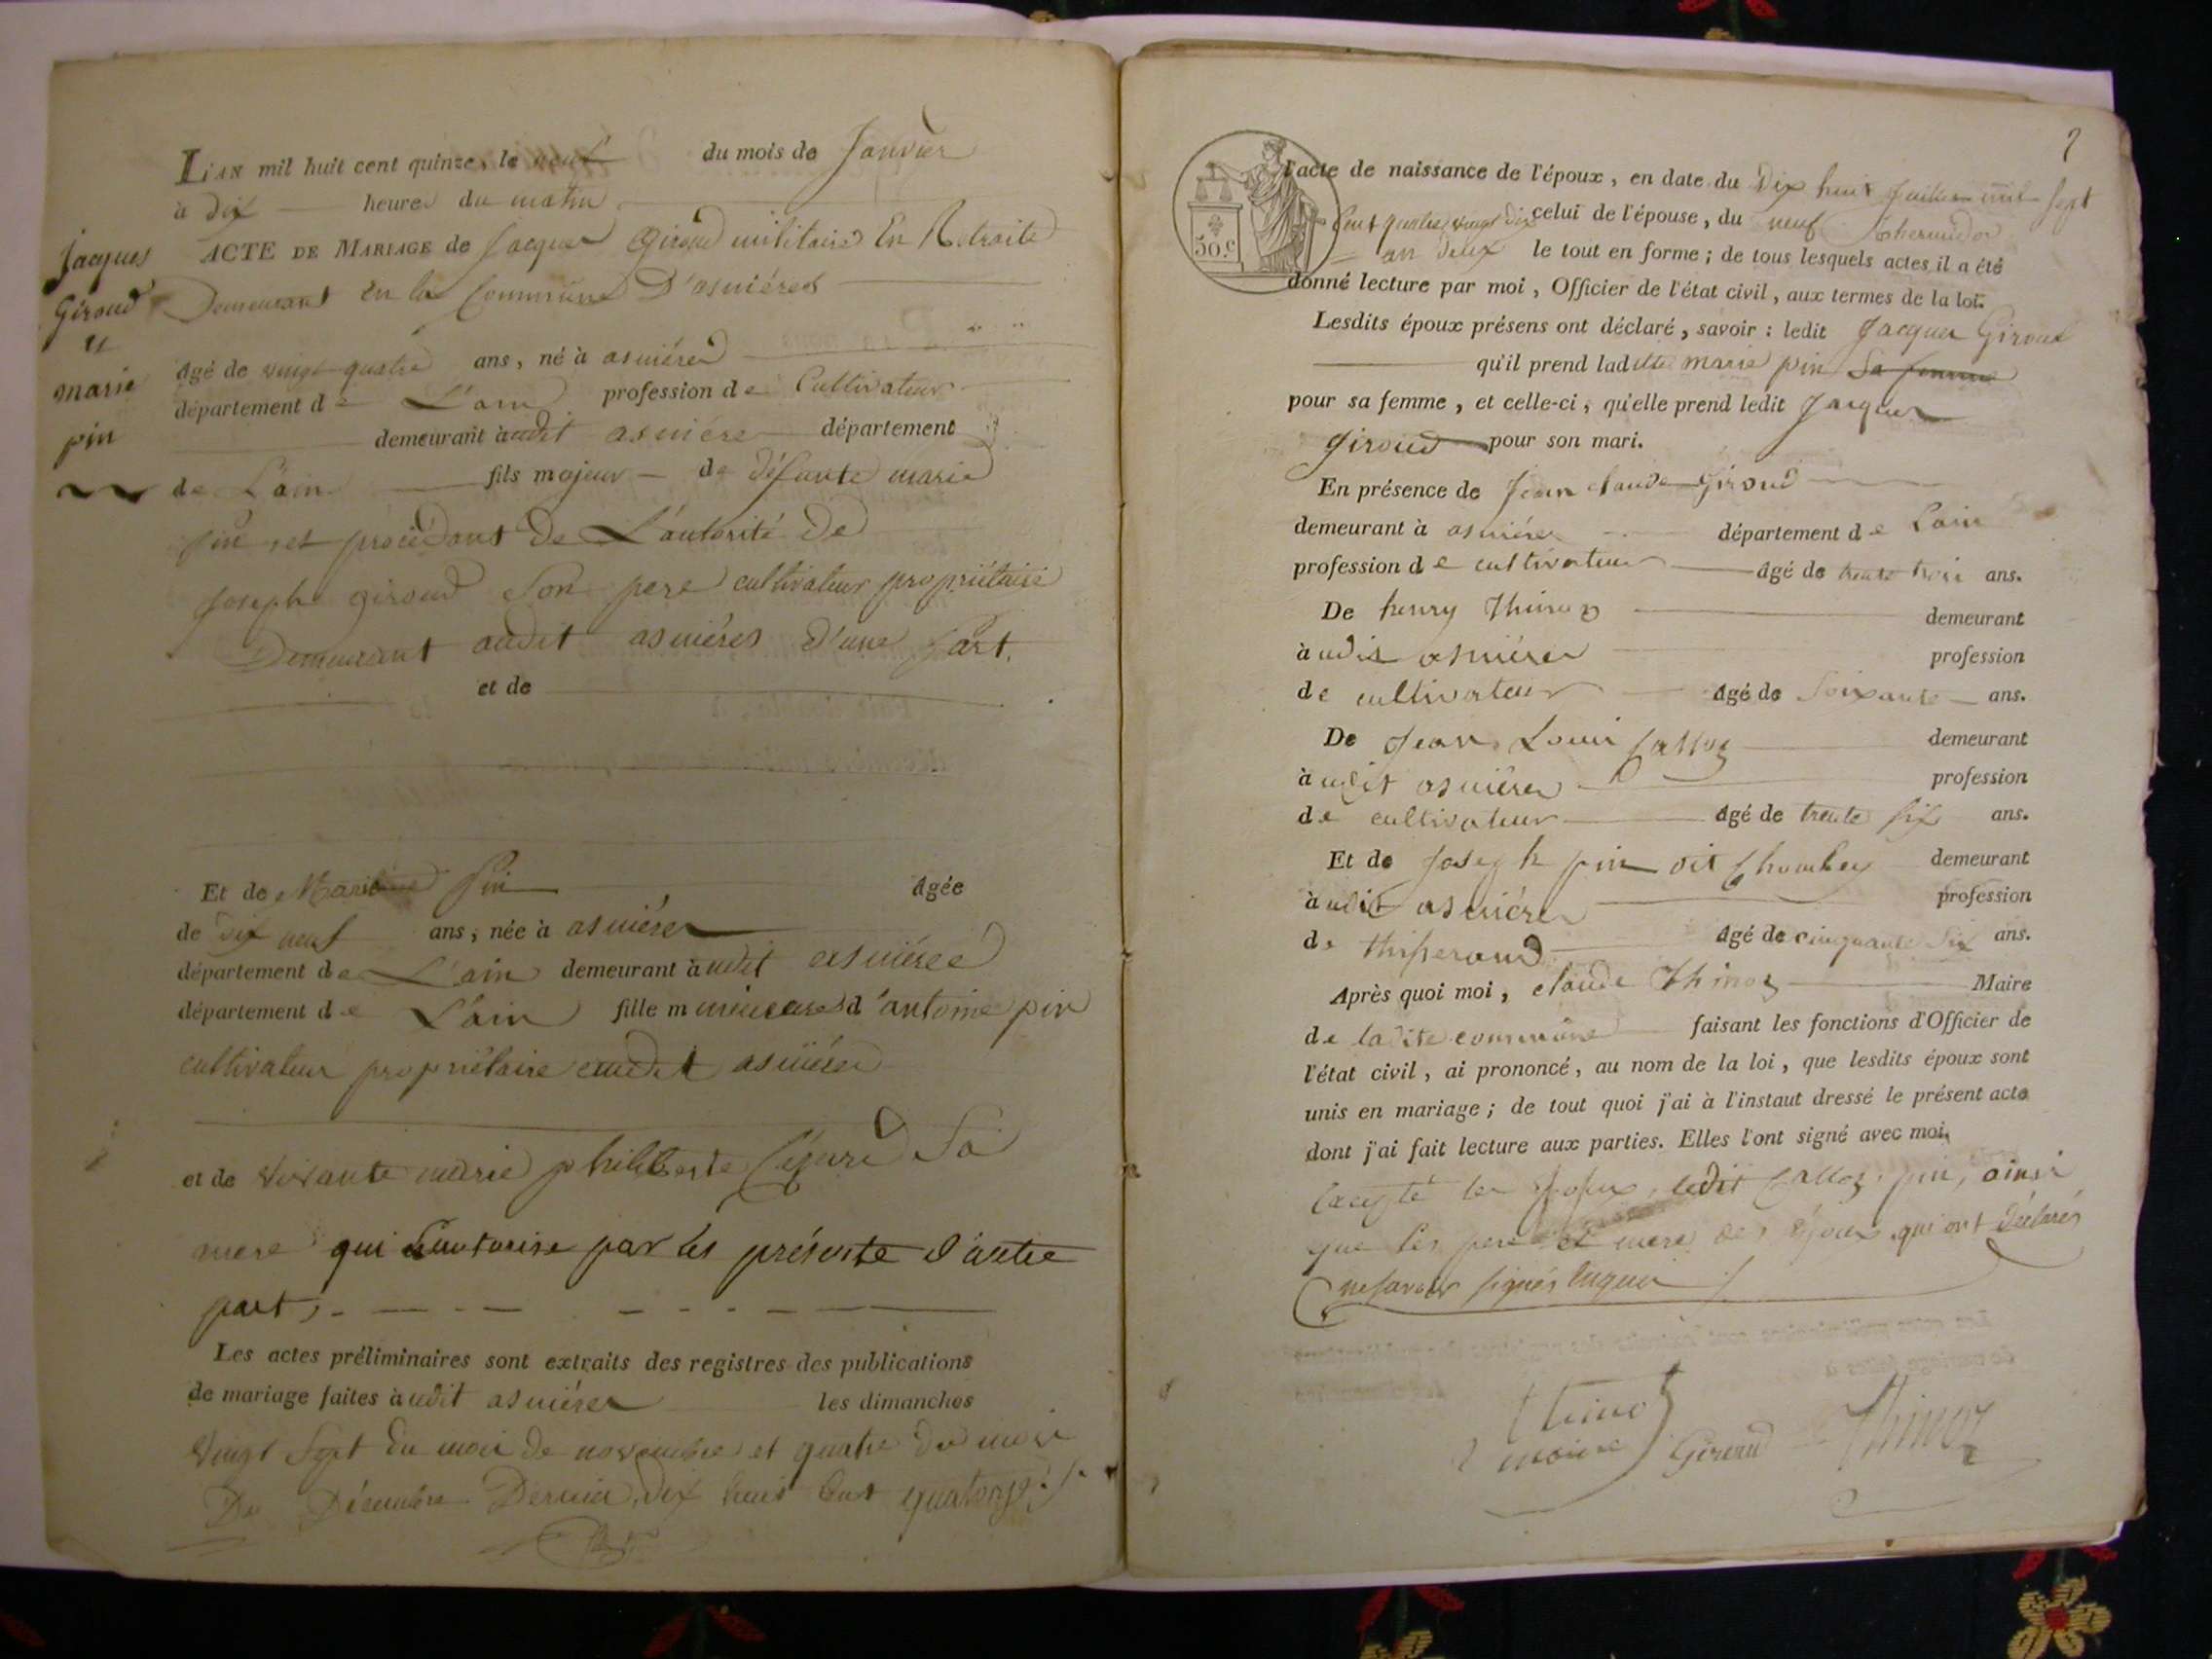 L'AN mil huit cent quinze, le neuf du mois de Janvier
à dix heures du matin
ACTE DE MARIAGE de Jacques Giroud militaire En Retraite
Demeurant en la Commune D'asniéres
Jacques
Giroud
et
marie
pin
âgé de vingt quatre ans, né à asniéres
département de L'ain profession de Cultivateur
demeurant àudit asniéres département
de L'ain fils majeur de défunte marie
pin, et procédant De L'autorité De
Joseph giroud Son pere cultivateur propriétaire
Demeurant audit asniéres d'une part.
et de
Et de Marie pin âgée
de dix neuf ans, née à asniéres
département de L'ain demeurant àudit asniéres
département de L'ain fille mineure d'antoine pin
cultivateur propriétaire audit asniéres
et de vivante marie philiberte Sa
mere qui L'autorise par les présente d'autre
part,
Les actes préliminaires sont extraits des registres des publications
de mariage faites àudit asniéres les dimanches
vingt Sept du mois de novembre et quatre du mois
De Décembre Dernier, dix huit Cent quatorze
50.c
l'acte de naissance de l'époux, en date du Dix huit Juillet mil Sept
Cent quatre vingt dix celui de l'épouse, du neuf thermidor
an deux le tout en forme; de tous lesquels actes il a été
donné lecture par moi, Officier de l'état civil, aux termes de la loi.
Lesdits époux présens ont déclaré, savoir: ledit Jacques Giroud
qu'il prend laditte marie pin Sa femme
pour sa femme, et celle-ci, qu'elle prend ledit Jacques
Giroud pour son mari.
En présence de Jean claude Giroud
demeurant à asniéres département de Lain
profession de cultivateur âgé de trente trois ans.
De henry Thinoz demeurant
àudit asniéres profession
de cultivateur âgé de Soixante ans.
De Jean Louis Calloz demeurant
àudit asniéres profession
de cultivateur âgé de trente six ans.
Et de Joseph pin dit demeurant
àudit asniéres profession
de thisserand âgé de cinquante Six ans.
Après quoi moi, claude Thinoz Maire
de ladite commune faisant les fonctions d'Officier de
l'état civil, ai prononcé, au nom de la loi, que lesdits époux sont
unis en mariage; de tout quoi j'ai à l'instant dressé le présent acte
dont j'ai fait lecture aux parties. Elles l'ont signé avec moi.
Excepté les ledit Calloz, pin, ainsi
que les pere et mere des époux qui ont déclarés
ne savoir signés Enquis
thinoz
maire Giroud Thinoz